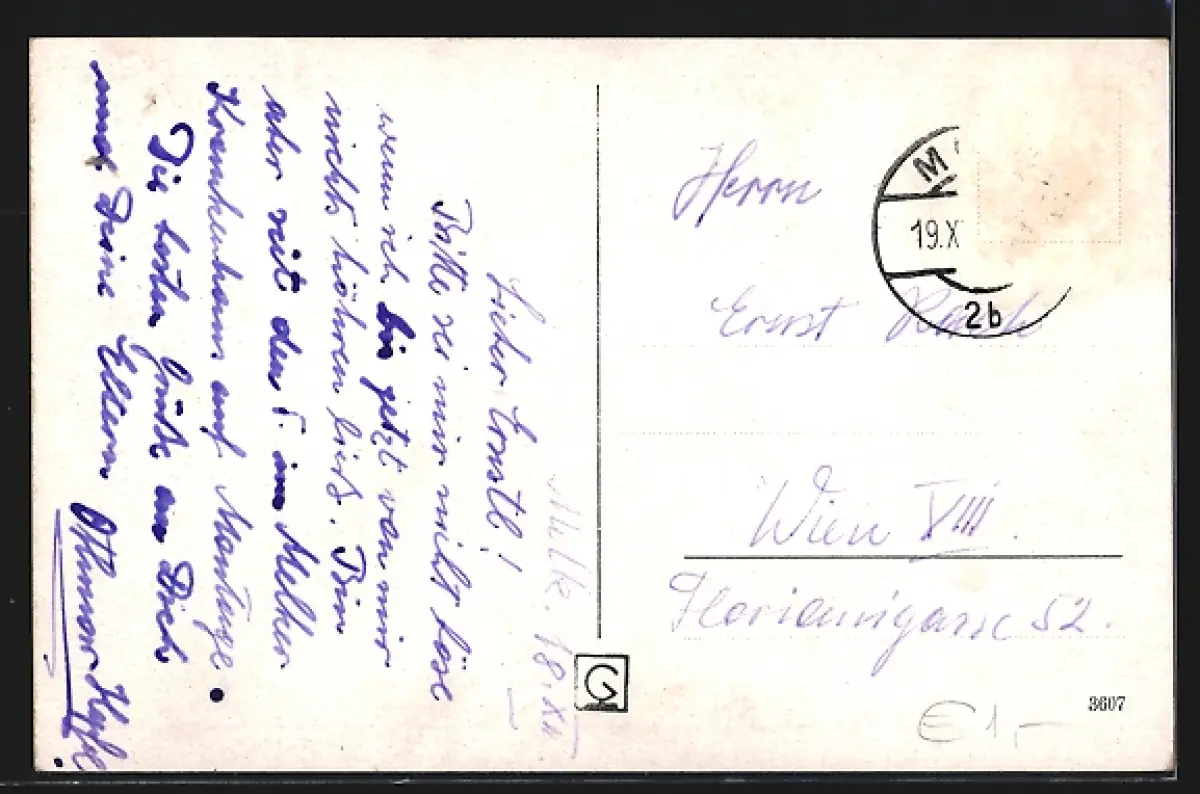 Melk. 18. XII.
Lieber Ernstl!
Bitte sei mir nicht böse
wenn ich bis jetzt von mir
nichts höhren ließ. Bin
aber seit dem 5. im Melker
Krankenhaus auf Montage.
Die besten Grüße an Dich
und Deine Eltern. Othmar
Herrn
Ernst
Wien VIII.
Florianigasse 52.
M
19.X
2b
G
3607
€1,-